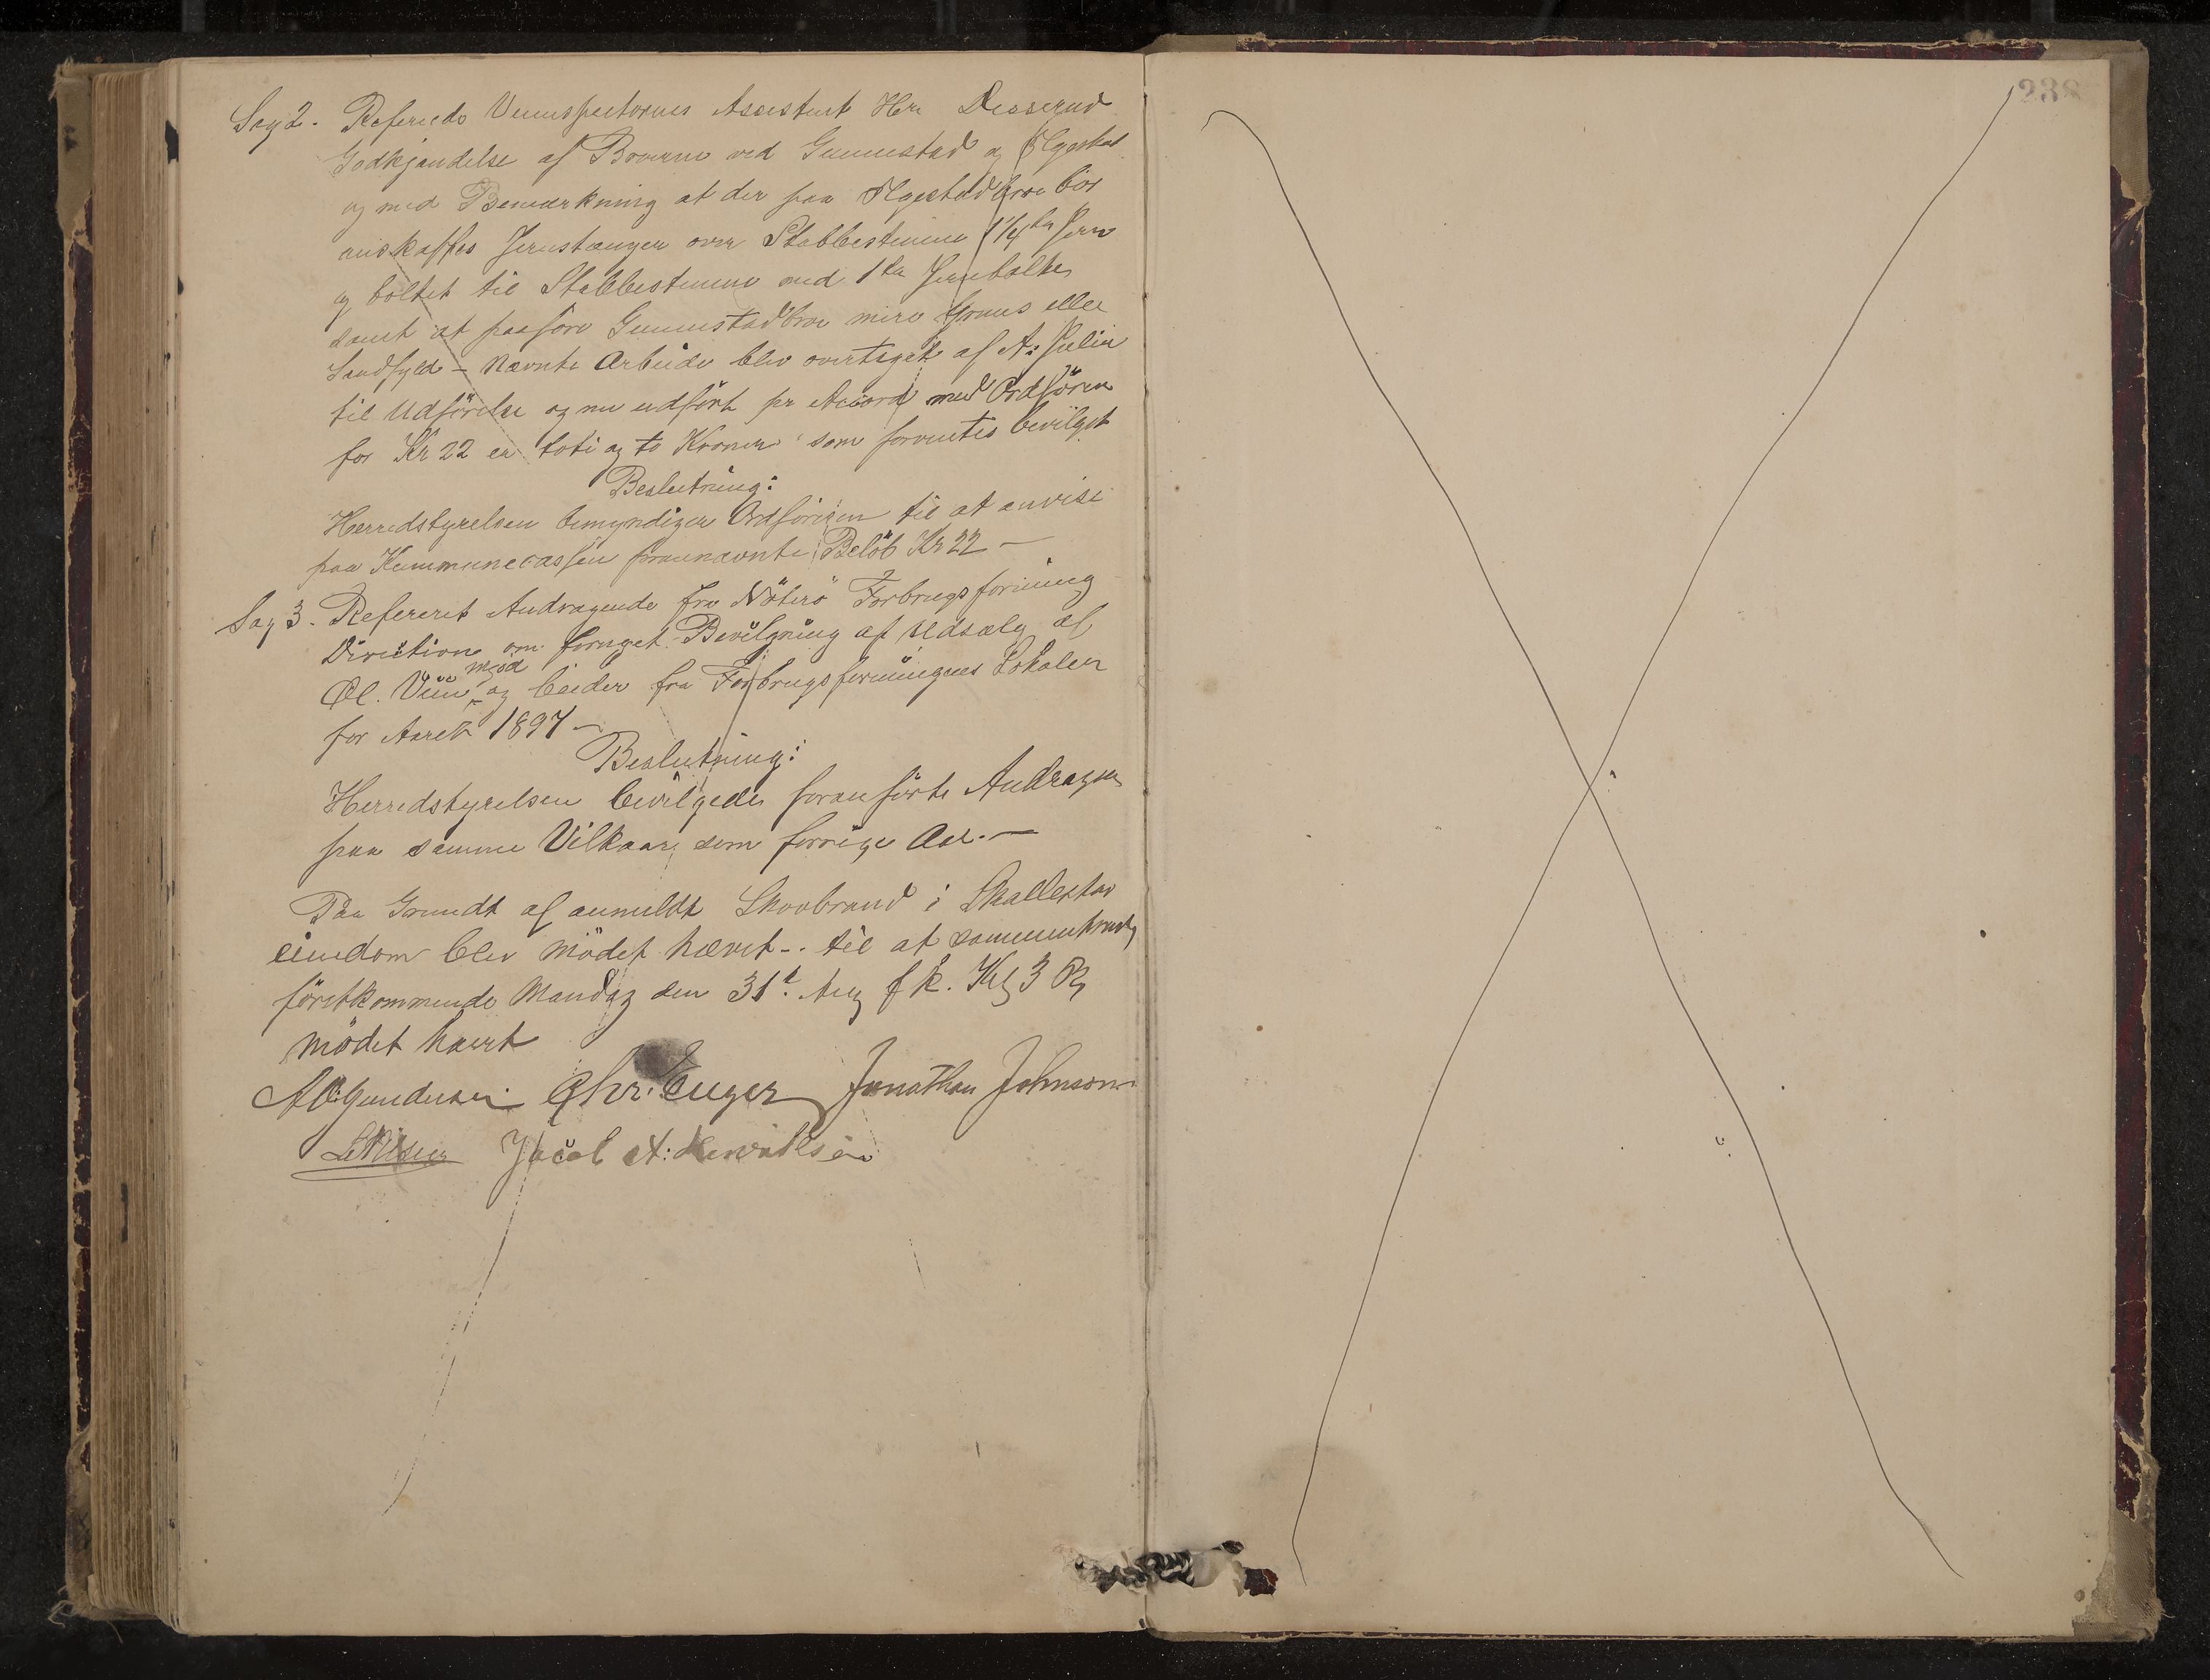 238
Sag 2. Refereds Veiinspectorens Assistent Herr Disserud
Godkjendelse af Broerne ved Gunnestad og Elgestad
og med Bemærkning at der paa Elgestadbroe bör
anskaffes Jernstænger over Stabbestenene 1 1/4 Jern
og boltet til Stabbestenene med 1 Jernbolter
samt at paaföre Gunnestadbroe mere Gruus eller
Sandfyld – Nævnte Arbeide blev overtaget af A: Julin
til Udförelse og nu udfört pr Accord med Ordfören
for Kr 22 er toti og to Kroner som forventes bevilget
Beslutning:
Herredstyrelsen bemyndiger Ordföreren til at anvise
paa Kommunecassen frannævnte Belöb Kr 22 –
Sag 3. Refereret Andragende fra Nöterö Forbrugsforening
Direction om fornyet Bevilgning af Udsalg af
Øl. Viin mjød og Ceider fra Forbrugsforeningens Lokaler
for Aaret 1897 –
Beslutning:
Herredstyrelsen bevilgede foranförte Andragen
paa samme Vilkaar som forrige Aar. –
Paa Grundt af anmeldt Skovbrand i Skallestad
eiendom blev Mödet hævet -. til at sammentræde
förstkommende Mandag den 31t Aug f k. Kl 3 Em
Mödet hævet
A O: Gundersen Chr. Unger Jonathan Johnson
L. Nilsen Jacob A: Henriksen